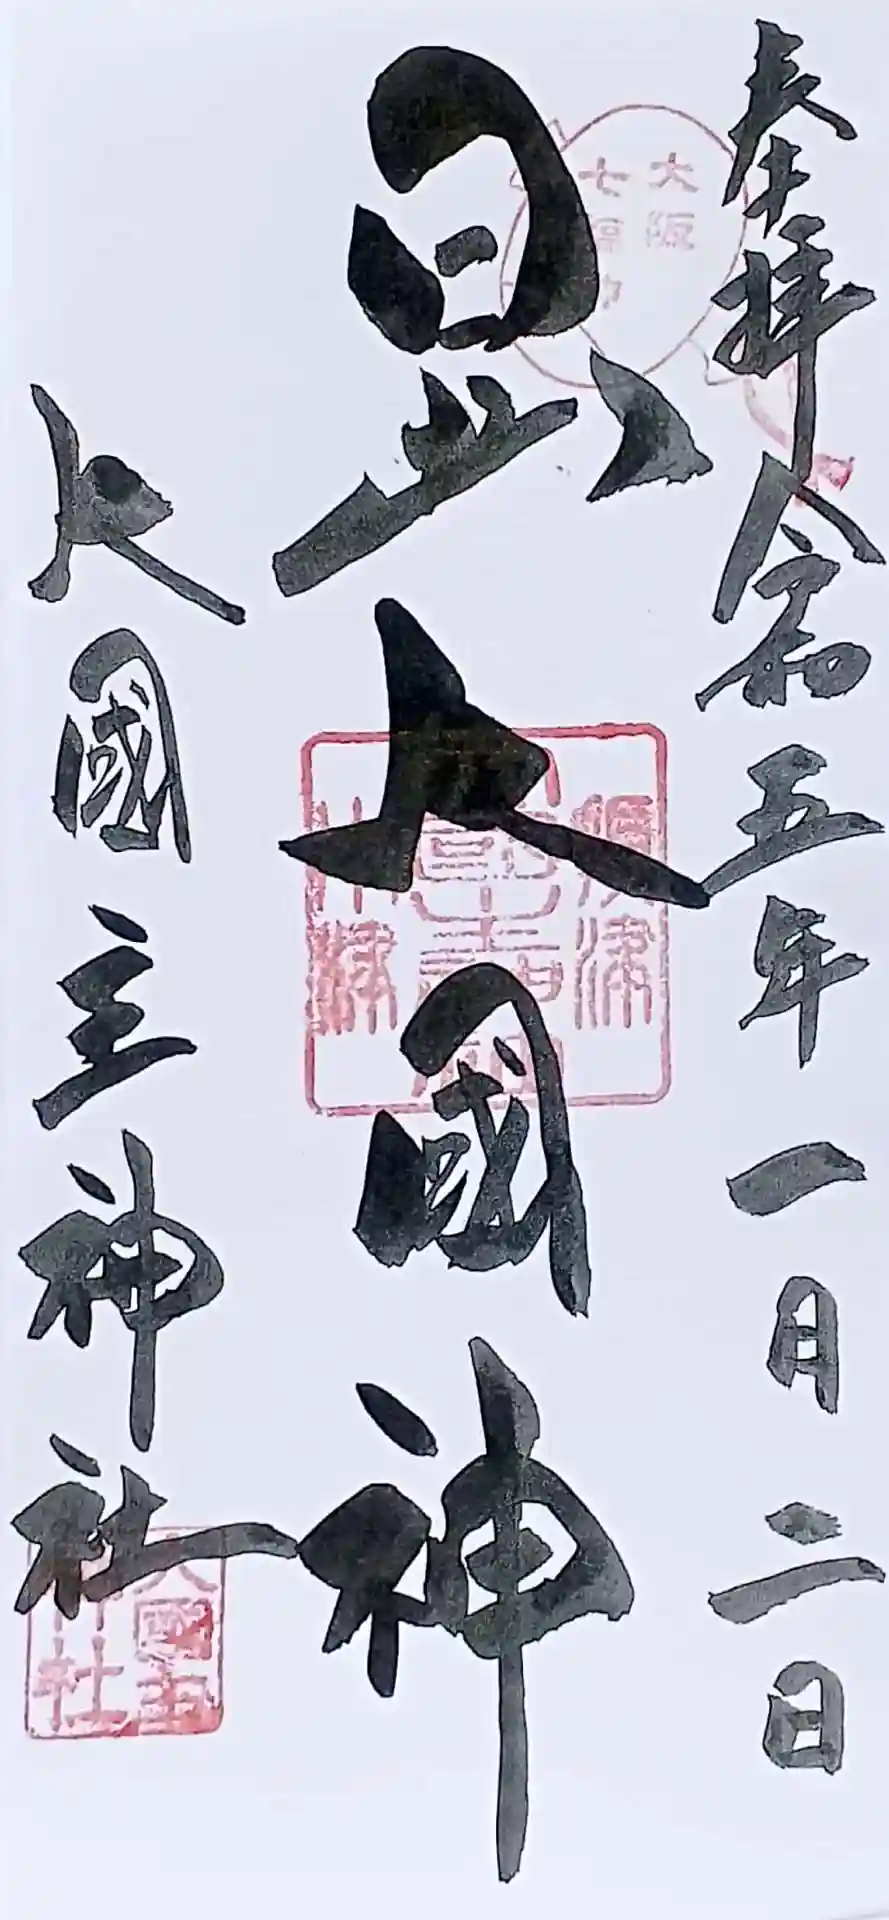 奉拝 令和五年一月二日
大阪
七福神
日出大國神
大國主神社
大國主
神社